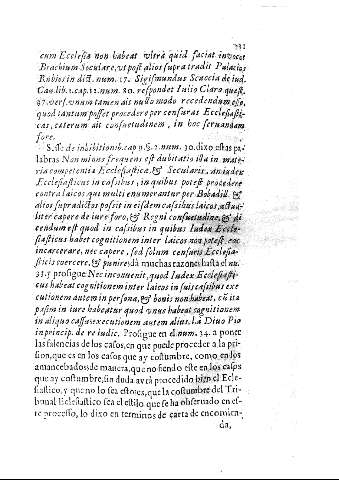 cum Ecclesia non habeat vltrà quid faciat invocet
Brachium Seculare, vt post alios supra tradit Palacios
Rubios in dict. num. 17. Sigismundus Scaccia de iud.
Cau. lib. 1. cap. 12. num. 80. respondet Iulio Claro quæst.
97. vers. vnum tamen ais nullo modo recedendum esse,
quod tantum posset procedere per censuras Ecclesiasti-
cas, cæterum ait consuetudinem, in hoc seruandam
fore.
Sesse de inhibitionib. cap. 8. §. 2. num. 30. dixo estas pa-
labras Non minus frequens est dubitatio illa in mate-
ria competentia Ecclesiastica, & Secularis, an iudex
Ecclesiasticus in casibus, in quibus potest procedere
contra laicos qui multi enumerantur per Bobadill. &
alios supradictos possit in eisdem casibus laicos, actua-
liter capere de iure foro, & Regni consuetudine, & di-
cendum est quod in casibus in quibus Iudex Eccle-
siasticus habet cognitionem inter laicos non potest, eos
incarcerare, nec capere, sed solum censuris Ecclesia-
sticis coercere, & punire da muchas razones hasta el nu.
33. y prosigue Nec inconuenit, quod Iudex Ecclesiasti-
cus habeat cognitionem inter laicos in suis casibus exe-
cutionem autem in persona, & bonis non habeat, cū ita
passim in iure habeatur quod vnus habeat cognitionem
in aliquo casu & executionem autem alius. l. à Diuo Pio
in princip. de re iudic. Prosigue en d. num. 34. a poner
las falencias de los casos, en que puede proceder a la pri-
sion, que es en los casos que ay costumbre, como en los
amancebados de manera, que no siendo este en los casos
que ay costumbre, sin duda avrà procedido bien el Ecle-
siastico, y que no lo sea este es, que la costumbre del Tri-
bunal Eclesiastico sea el estilo que se ha observado en es-
te processo, lo dixo en terminos de carta de encomica-
da,